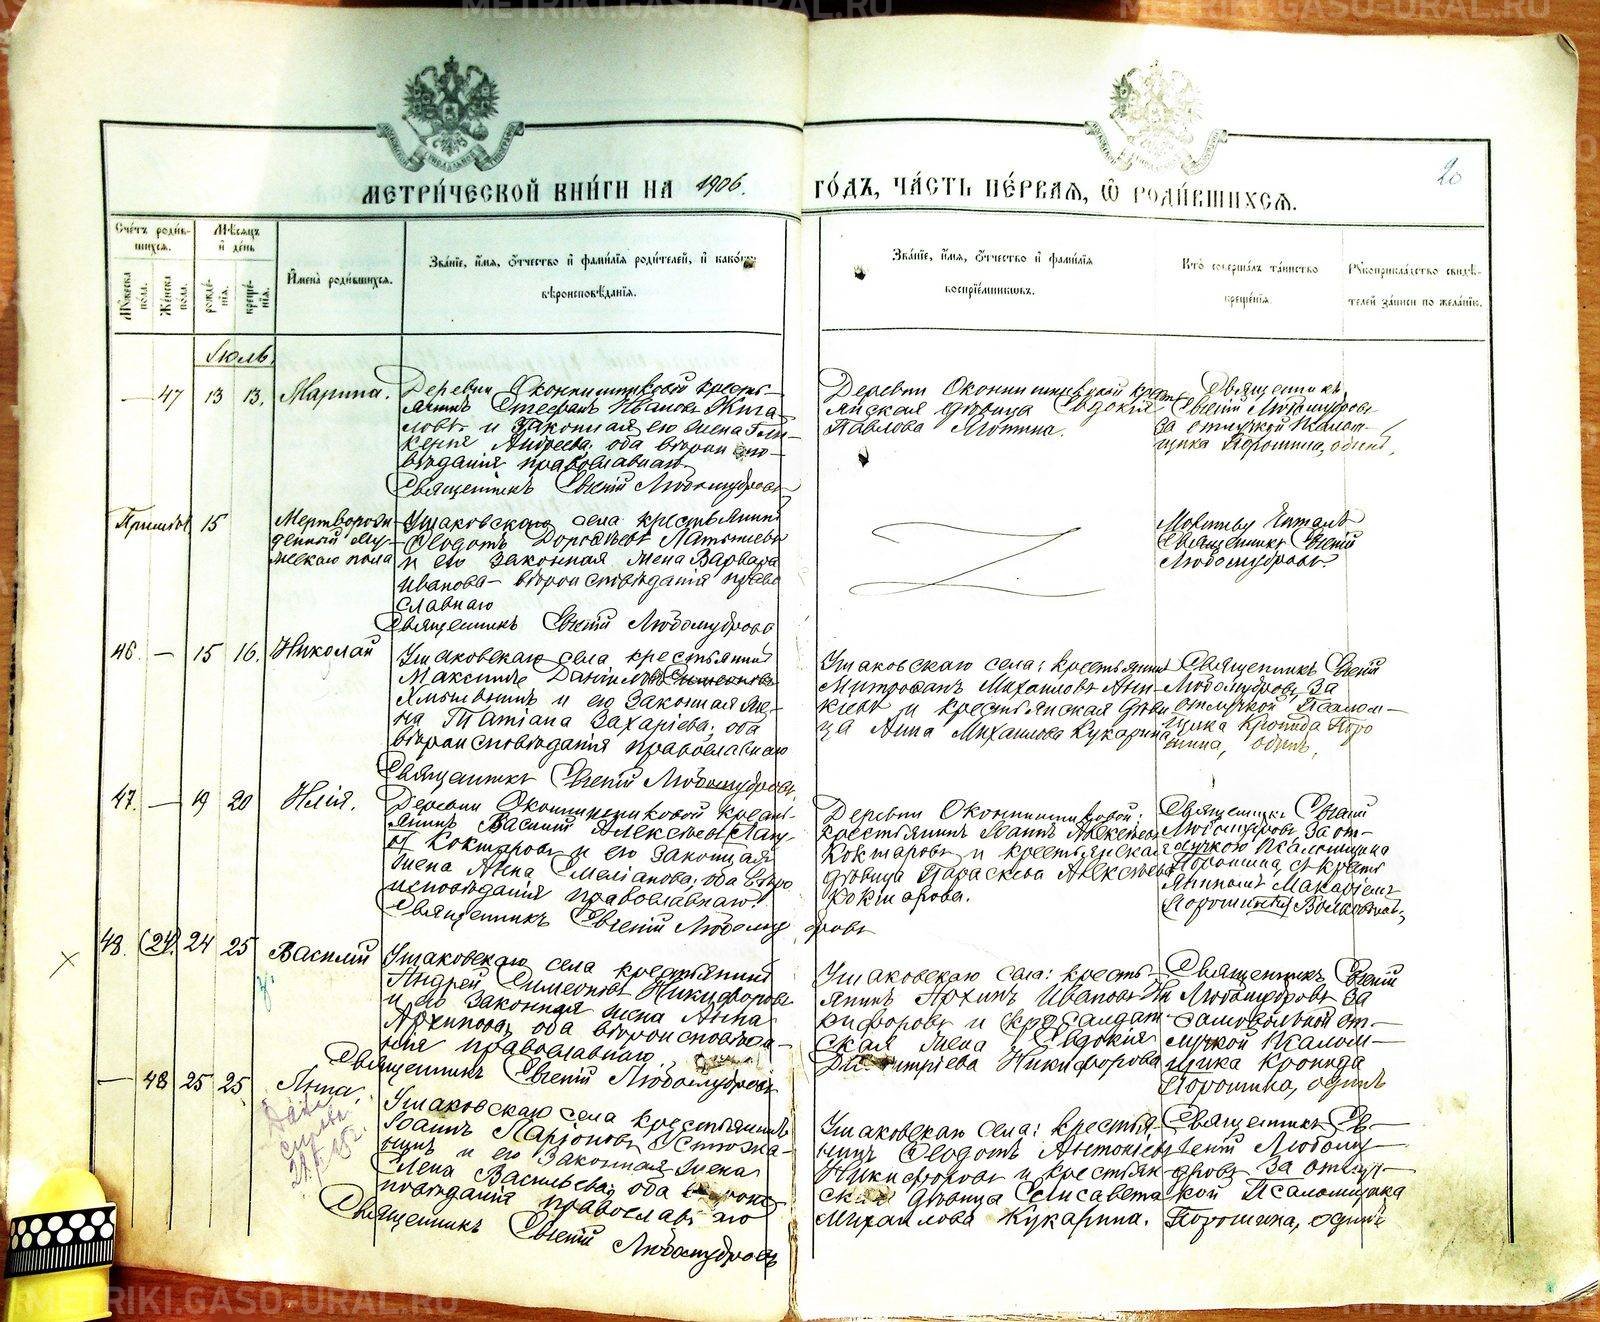 METRIKI.GASO-URAL.RU
METRIKI.GASO-URAL.RU
МЕТРИ́ЧЕСКОЙ КНИ́ГИ НА 1906.
ГО́ДЪ, ЧА́СТЬ ПЕ́РВАѦ, Ѡ҆ РОДИ́ВШИХСѦ.
20
Сче́тъ роди́в-
шихсѧ.
Мѣ́сѧцъ
и҆ де́нь
Мꙋ́жеска
по́ла.
Же́нска
по́ла.
рожде́-
нїѧ.
креще́-
нїѧ.
И҆мена̀ роди́вшихсѧ.
Зва́нїе, и҆́мѧ, ѻ҆́тчество и҆ фами́лїѧ роди́телей, и҆ како́гѡ
вѣроисповѣ́данїѧ.
Зва́нїе, и҆́мѧ, ѻ҆́тчество и҆ фами́лїѧ
воспрїе́мникѡвъ.
Кто̀ соверша́лъ та́инство
креще́нїѧ
Рꙋкоприкла́дство свидѣ́-
телей за́писи по жела́нїю.
Іюль.
— 47 13 13. Марина.
Деревни Оконнишниковой кресть-
янинъ Стефанъ Ивановъ Жига-
ловъ и законная его жена Гли-
керія Андреева, оба вѣроиспо-
вѣданія православнаго
Священникъ Евгеній Любомудровъ
Деревни Оконнишниковой кресть-
янская дѣвица Евдокія
Павлова
Священникъ
Евгеній Любомудровъ
за отлучкой Псалом-
щика Порошина, одинъ.
15
Мертворож-
денный му-
жескаго пола
Ушаковскаго села крестьянинъ
Ѳеодотъ Дороѳеевъ Латышевъ
и его законная жена Варвара
Иванова вѣроисповѣданія право
славнаго
Священникъ Евгеній Любомудровъ
Молитву читалъ
Священникъ Евгеній
Любомудровъ.
46 — 15 16. Николай
Ушаковскаго села крестьянинъ
Максимъ Даніиловъ
и его законная же-
на Татіана Захаріева, оба
вѣроисповѣданія православнаго
Священникъ Евгеній Любомудровъ
Ушаковскаго села: крестьянинъ
Митрофанъ Михаиловъ Ани-
кіевъ и крестьянская дѣви
ца Анна Михаилова Кукарина
Священникъ Евгеній
Любомудровъ, за
отлучкой Псалом-
щика Кронида Поро
шина, одинъ.
47. — 19 20 Илія.
Деревни Оконнишниковой кресть-
янинъ Василій Алексѣевъ
Кокшаровъ и его законная
жена Анна оба вѣро
исповѣданія православнаго.
Священникъ Евгеній Любому
дровъ
Деревни Оконнишниковой:
крестьянинъ Іоаннъ Алексѣевъ
Кокшаровъ и крестьянская
дѣвица Параскева Алексѣева
Кокшарова.
Священникъ Евгеній
Любомудровъ, за от-
лучкою Псаломщика
Порошина, съ кресть
яниномъ Макаріемъ
48. (24) 24 25 Василій
Ушаковскаго села крестьянинъ
Андрей Симеоновъ Никифоровъ
и его законная жена Анна
Архипова, оба вѣроисповѣда-
нія православнаго.
Священникъ Евгеній Любомудровъ
Ушаковскаго села: кресть-
янинъ Архипъ Ивановъ Ни
кифоровъ и солдат-
ская жена Евдокія
Димитріева Никифорова
Священникъ Евгеній
Любомудровъ за
самовольной от-
лучкой Псалом-
щика Кронида
Порошина, одинъ
— 48 25 25. Анна.
Ушаковскаго села крестьянинъ
Іоаннъ Ларіоновъ
и его законная жена
Елена Васильева, оба вѣроис-
повѣданія православнаго
Священникъ Евгеній Любомудровъ
Ушаковскаго села: крестья-
нинъ Ѳеодотъ Антоніевъ
Никифоровъ и крестьян
ская дѣвица Елисавета
Михаилова Кукарина.
Священникъ Ев-
геній Любому-
дровъ за отлуч-
кой Псаломщика
Порошина, одинъ
METRIKI.GASO-URAL.RU